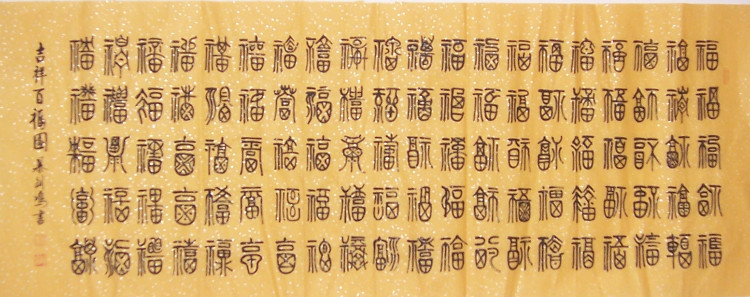 福福福福福
福福福福福
福福福福福
福福福福福
福福福福福
福福福福福
福福福福福
福福福福福
福福福福福
福福福福福
福福福福福
福福福福福
福福福福福
福福福福福
福福福福福
福福福福福
福福福福福
福福福福福
福福福福福
福福福福福
吉祥百福圖 書